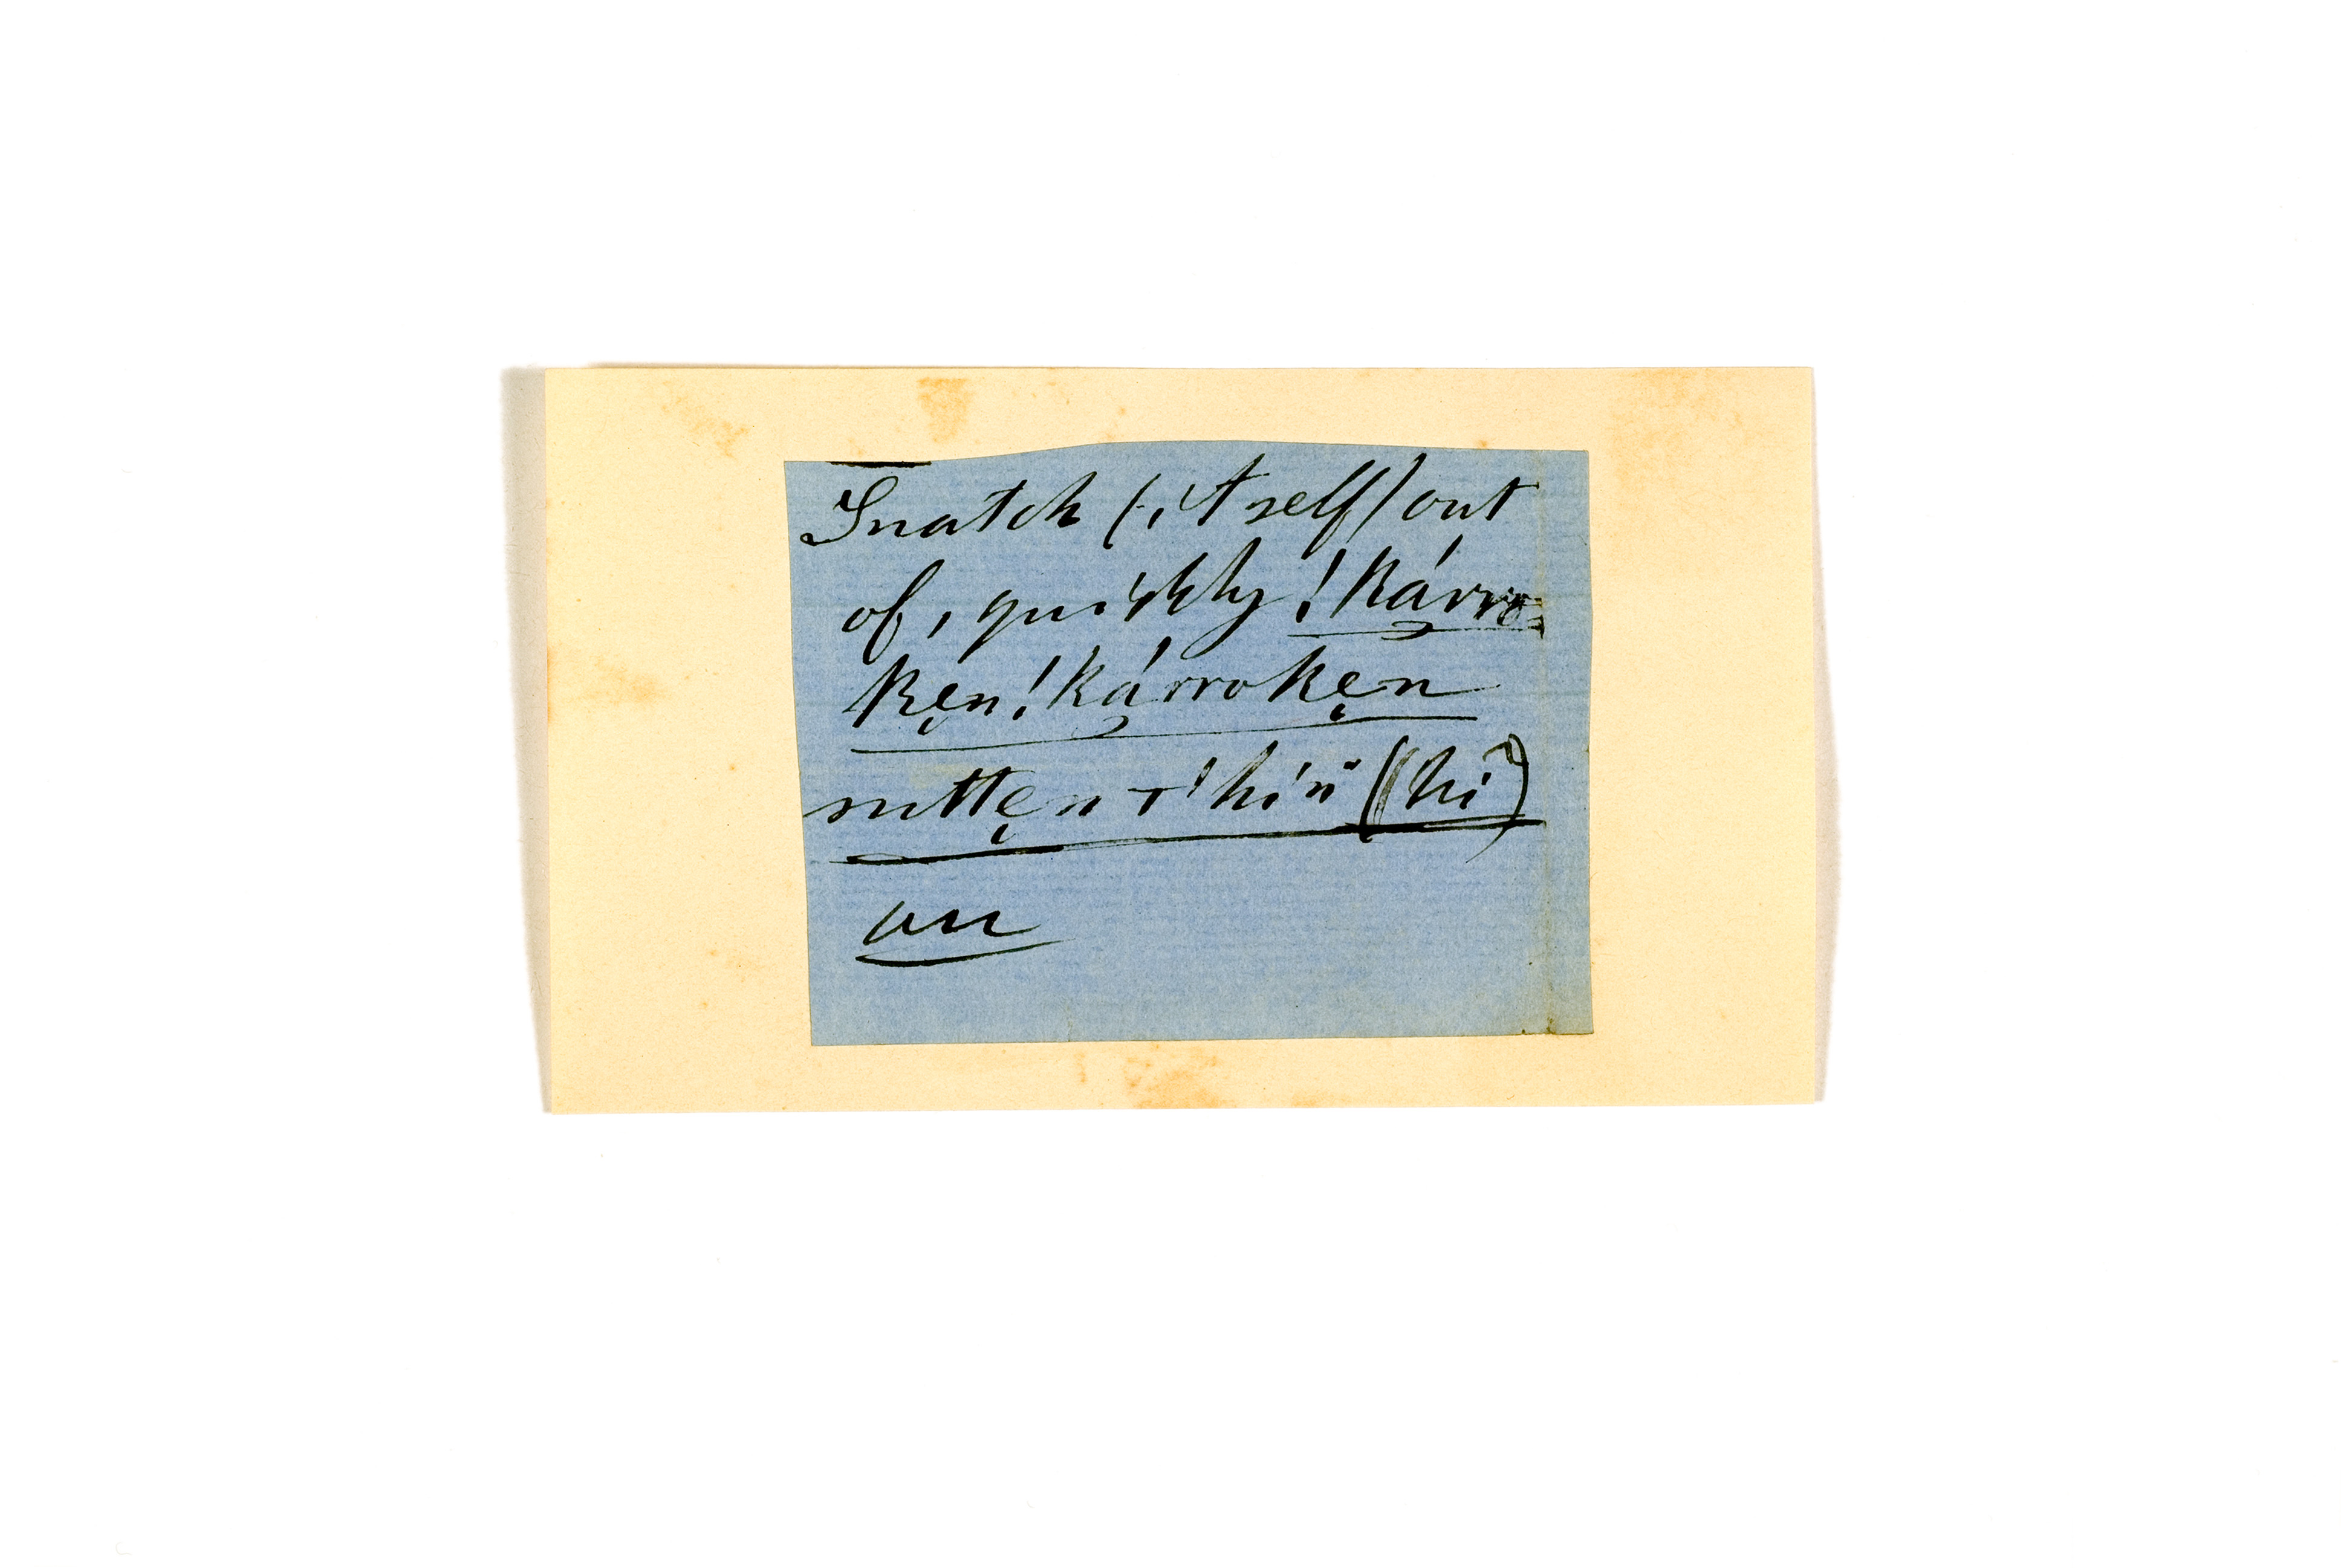 Snatch (itself) out
of, quickly !kárro-
kẹn!kárrokẹn
suttẹn + !hín̈ (hí)
au